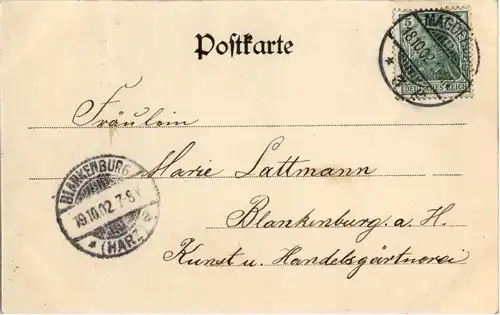 Postkarte
MAGDE
18.10.02
5
DEUTSCHES REICH
Fräulein
Marie Lattmann
Blankenburg a. H.
Kunst u. Handelsgärtnerei
BLANKENBURG
19.10.02. 7-8 V
* (HARZ)